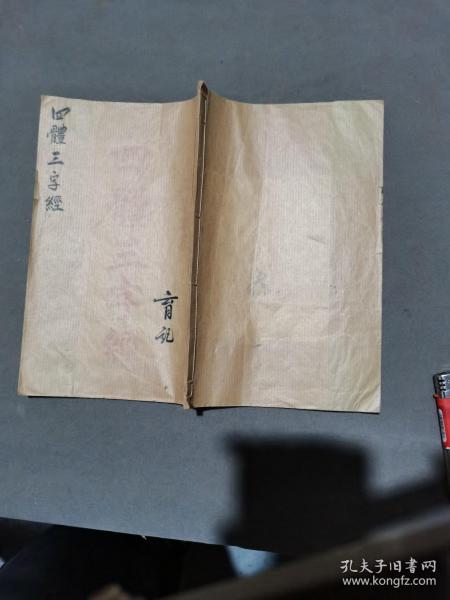 四體三字經
育記
孔夫子旧书网
www.kongfz.com